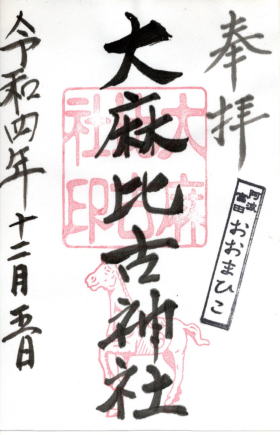 奉拝
阿波
富田
おおまひこ
大麻比古神社
大麻比古社印
令和四年十二月五日